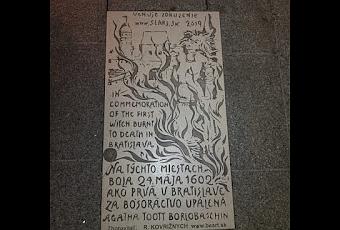 VENUJE ZDRUŽENIE
www.SLAHS.SK 2019
IN
COMMEMORATION
OF THE FIRST
WITCH BURNT
TO DEATH IN
BRATISLAVA
NA TÝCHTO MIESTACH
BOLA 24. MÁJA 1602
AKO PRVÁ V BRATISLAVE
ZA BOSORÁCTVO UPÁLENÁ
AGATHA TOOTT BORLOBASCHIN
Zhotoviteľ: R. KOVRIŽNYCH www.beart.sk